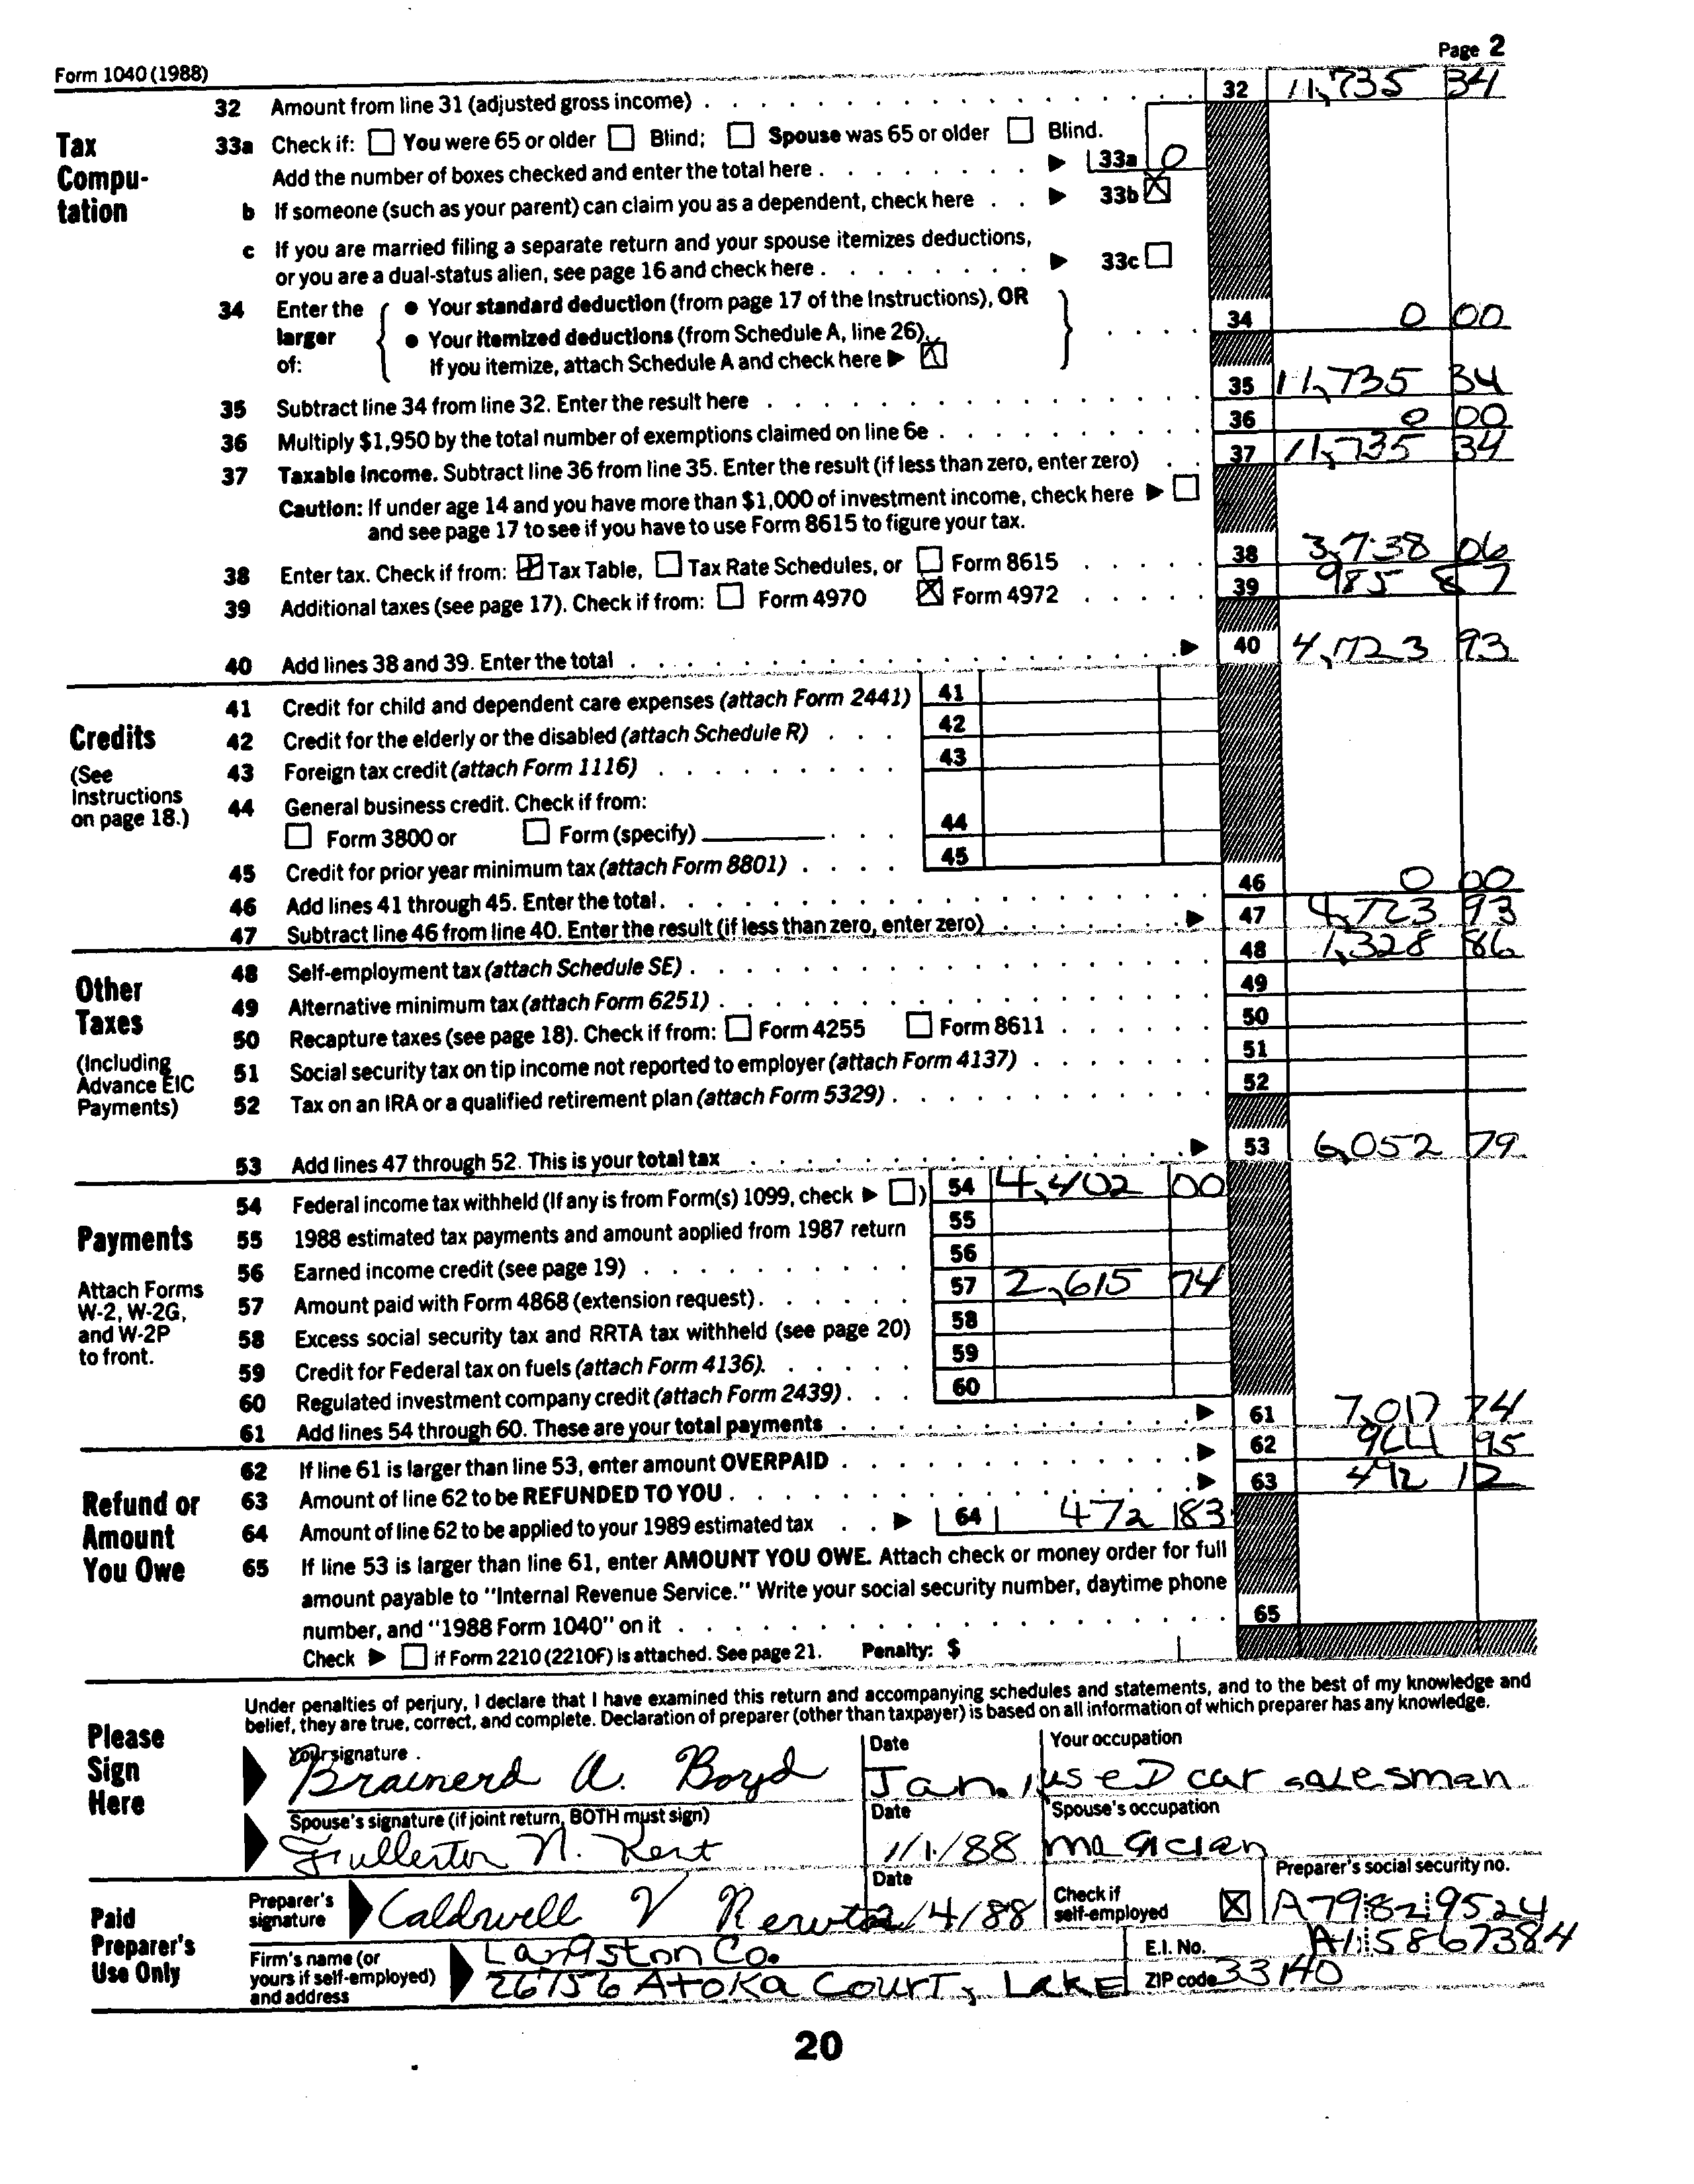 Form 1040 (1988) Page 2
32 Amount from line 31 (adjusted gross income) 32 11,735 34
Tax Compu-tation
33a Check if: You were 65 or older Blind; Spouse was 65 or older Blind.
Add the number of boxes checked and enter the total here 33a 0
b If someone (such as your parent) can claim you as a dependent, check here 33b X
c If you are married filing a separate return and your spouse itemizes deductions,
or you are a dual-status alien, see page 16 and check here 33c
34 Enter the larger of: • Your standard deduction (from page 17 of the Instructions), OR
• Your itemized deductions (from Schedule A, line 26). 34 0 00
If you itemize, attach Schedule A and check here X
35 Subtract line 34 from line 32. Enter the result here 35 11,735 34
36 Multiply $1,950 by the total number of exemptions claimed on line 6e 36 0 00
37 Taxable income. Subtract line 36 from line 35. Enter the result (if less than zero, enter zero) 37 11,735 34
Caution: If under age 14 and you have more than $1,000 of investment income, check here
and see page 17 to see if you have to use Form 8615 to figure your tax.
38 Enter tax. Check if from: X Tax Table, Tax Rate Schedules, or Form 8615 38 3,738 06
39 Additional taxes (see page 17). Check if from: Form 4970 X Form 4972 39 985 87
40 Add lines 38 and 39. Enter the total 40 4,723 93
Credits
(See Instructions on page 18.)
41 Credit for child and dependent care expenses (attach Form 2441) 41
42 Credit for the elderly or the disabled (attach Schedule R) 42
43 Foreign tax credit (attach Form 1116) 43
44 General business credit. Check if from:
Form 3800 or Form (specify) 44
45 Credit for prior year minimum tax (attach Form 8801) 45
46 Add lines 41 through 45. Enter the total 46 0 00
47 Subtract line 46 from line 40. Enter the result (if less than zero, enter zero) 47 4,723 93
Other Taxes
(Including Advance EIC Payments)
48 Self-employment tax (attach Schedule SE) 48 1,328 86
49 Alternative minimum tax (attach Form 6251) 49
50 Recapture taxes (see page 18). Check if from: Form 4255 Form 8611 50
51 Social security tax on tip income not reported to employer (attach Form 4137) 51
52 Tax on an IRA or a qualified retirement plan (attach Form 5329) 52
53 Add lines 47 through 52. This is your total tax 53 6,052 79
Payments
Attach Forms W-2, W-2G, and W-2P to front.
54 Federal income tax withheld (If any is from Form(s) 1099, check ) 54 4,402 00
55 1988 estimated tax payments and amount applied from 1987 return 55
56 Earned income credit (see page 19) 56
57 Amount paid with Form 4868 (extension request) 57 2,615 74
58 Excess social security tax and RRTA tax withheld (see page 20) 58
59 Credit for Federal tax on fuels (attach Form 4136). 59
60 Regulated investment company credit (attach Form 2439) 60
61 Add lines 54 through 60. These are your total payments 61 7,017 74
Refund or Amount You Owe
62 If line 61 is larger than line 53, enter amount OVERPAID 62 964 95
63 Amount of line 62 to be REFUNDED TO YOU 63 492 12
64 Amount of line 62 to be applied to your 1989 estimated tax 64 472 83
65 If line 53 is larger than line 61, enter AMOUNT YOU OWE. Attach check or money order for full
amount payable to "Internal Revenue Service." Write your social security number, daytime phone
number, and "1988 Form 1040" on it 65
Check if Form 2210 (2210F) is attached. See page 21. Penalty: $
Please Sign Here
Under penalties of perjury, I declare that I have examined this return and accompanying schedules and statements, and to the best of my knowledge and
belief, they are true, correct, and complete. Declaration of preparer (other than taxpayer) is based on all information of which preparer has any knowledge.
Your signature Date Your occupation
Brainerd A. Boyd Jan. 1 used car salesman
Spouse's signature (if joint return, BOTH must sign) Date Spouse's occupation
Fullerton N. Kent 1/1/88 magician
Paid Preparer's Use Only
Preparer's signature Date Check if self-employed X Preparer's social security no.
Caldwell V 2/4/88 A79 82 9524
Firm's name (or yours if self-employed) and address
Langston Co. E.I. No. A1 5867384
26756 Atoka Court, Lake ZIP code 33140
20